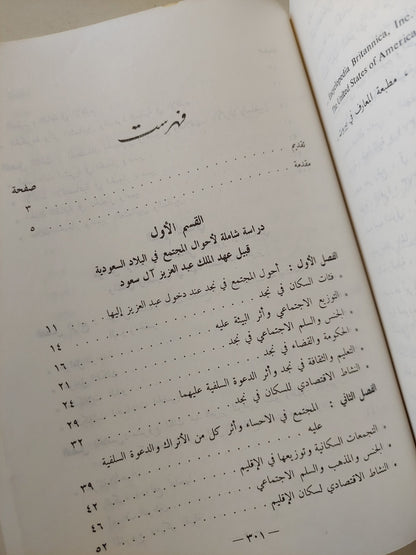 Encyclopedia Britannica, Inc.
The United States of America
مطبعة المعارف في
فهرست
صفحة
تقديم ٣
مقدمة ٥
القسم الأول
دراسة شاملة لأحوال المجتمع في البلاد السعودية
قبيل عهد الملك عبد العزيز آل سعود
الفصل الأول : أحول المجتمع في نجد عند دخول عبد العزيز إليها ١١
* فئات السكان في نجد ١٤
* التوزيع الاجتماعي وأثر البيئة عليه ١٦
* الجنس والسلم الاجتماعي في نجد ٢١
* الحكومة والقضاء في نجد ٢٤
* التعليم والثقافة في نجد وأثر الدعوة السلفية عليهما ٢٩
* النشاط الاقتصادي للسكان في نجد ٣٢
الفصل الثاني : المجتمع في الاحساء وأثر كل من الأتراك والدعوة السلفية
عليه ٣٩
* التجمعات السكانية وتوزيعها في الإقليم ٤٢
* الجنس والمذهب والسلم الاجتماعي ٤٦
* النشاط الاقتصادي لسكان الإقليم ٥٢
— ٣٠١ —